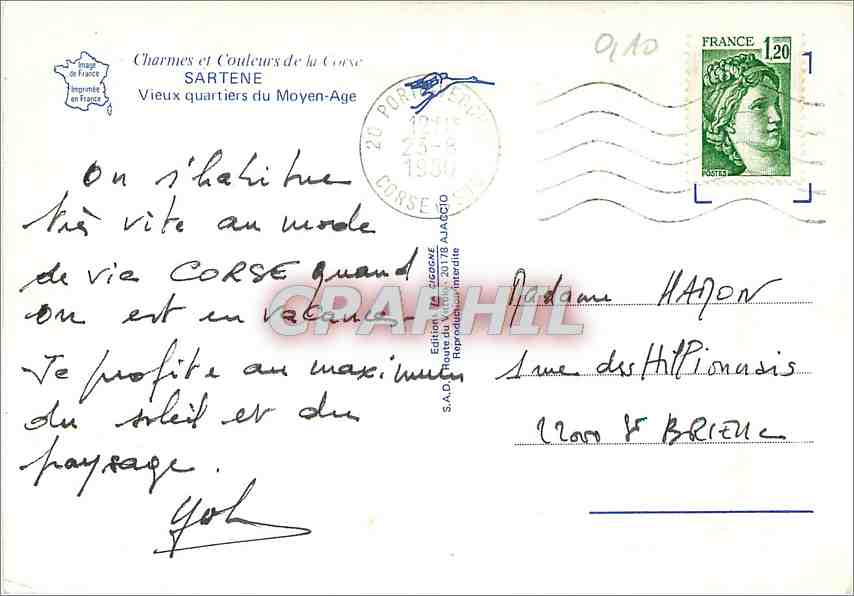 Image
de France
Imprimée
en France
Charmes et Couleurs de la Corse
SARTENE
Vieux quartiers du Moyen-Age
0,10
FRANCE 1,20
POSTES
20 PORTO
23-8
1980
CORSE
On s'habitue
très vite au mode
de vie CORSE quand
on est en vacances.
Je profite au maximum
du soleil et du
paysage.
Editions "LA CIGOGNE"
S.A.D. Route du 20178 AJACCIO
Reproduction interdite
CPAPHIL
Madame HAMON
1 rue des Hillionnais
22000 St BRIEUC